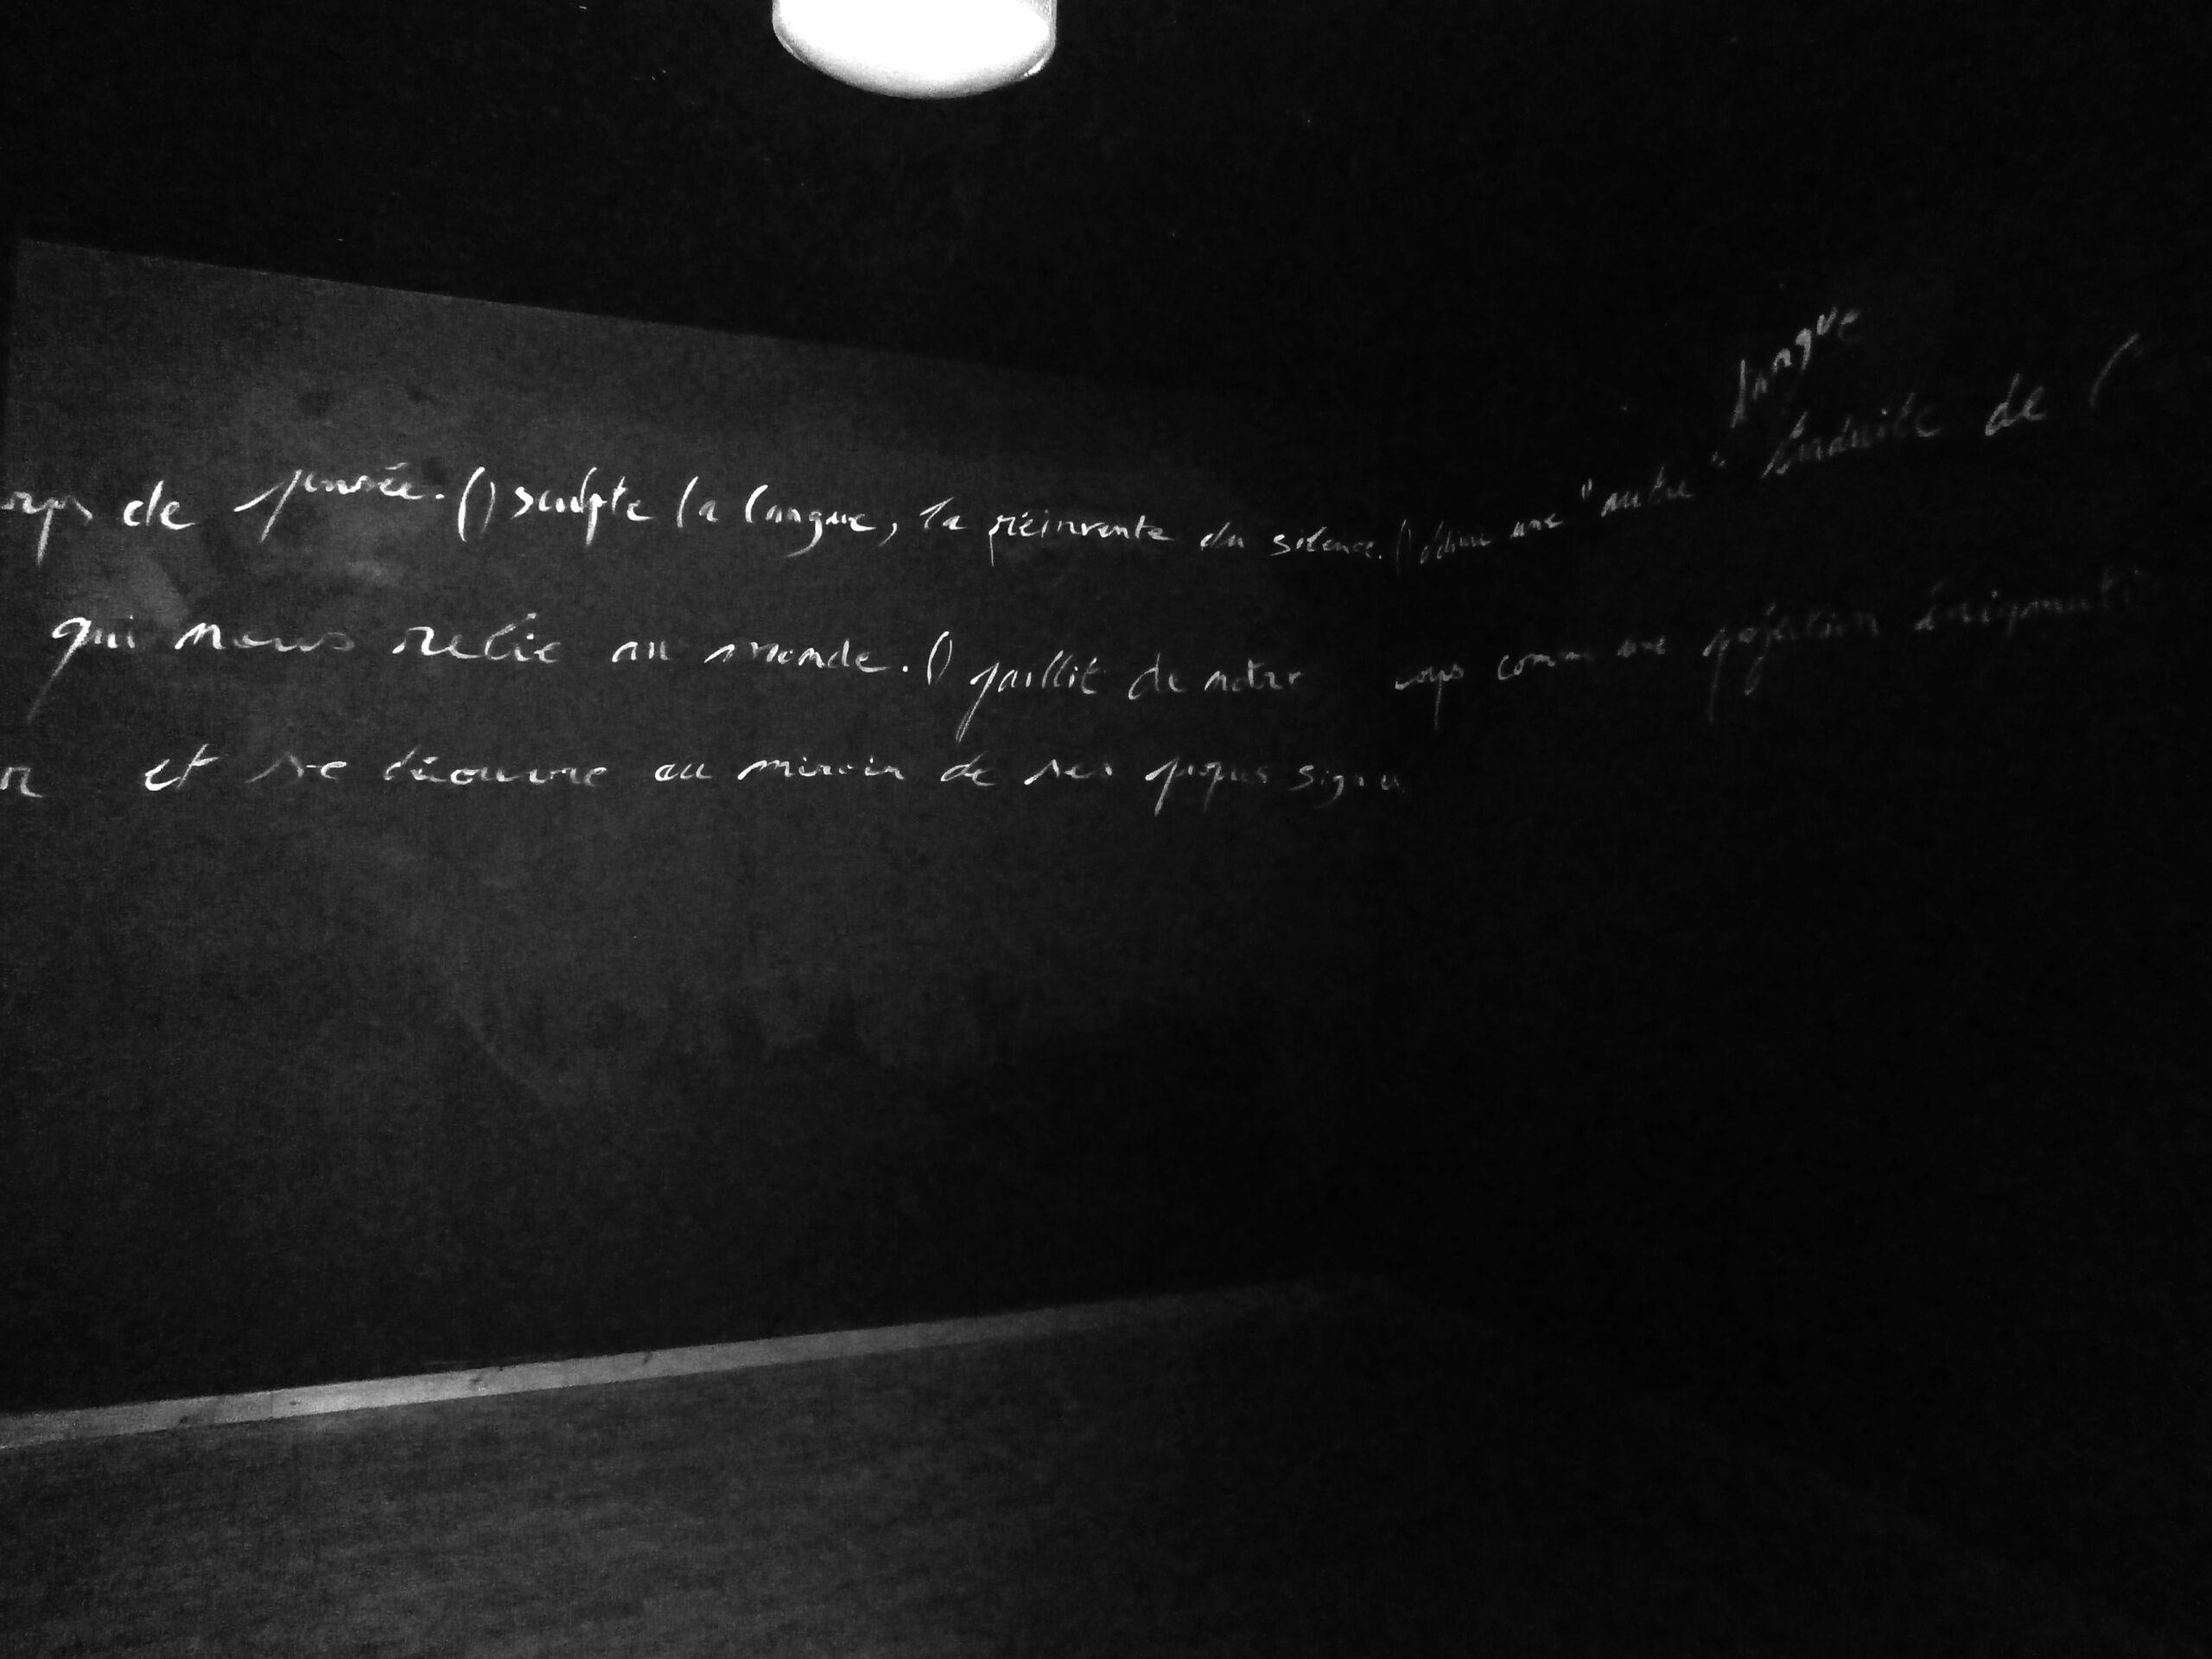 langue
de pensée. () sculpte la langue, la réinvente du silence. () une "autre" traduite de (
qui nous relie au monde. () jaillit de notre corps comme une projection
et se découvre au miroir de ses propres signes